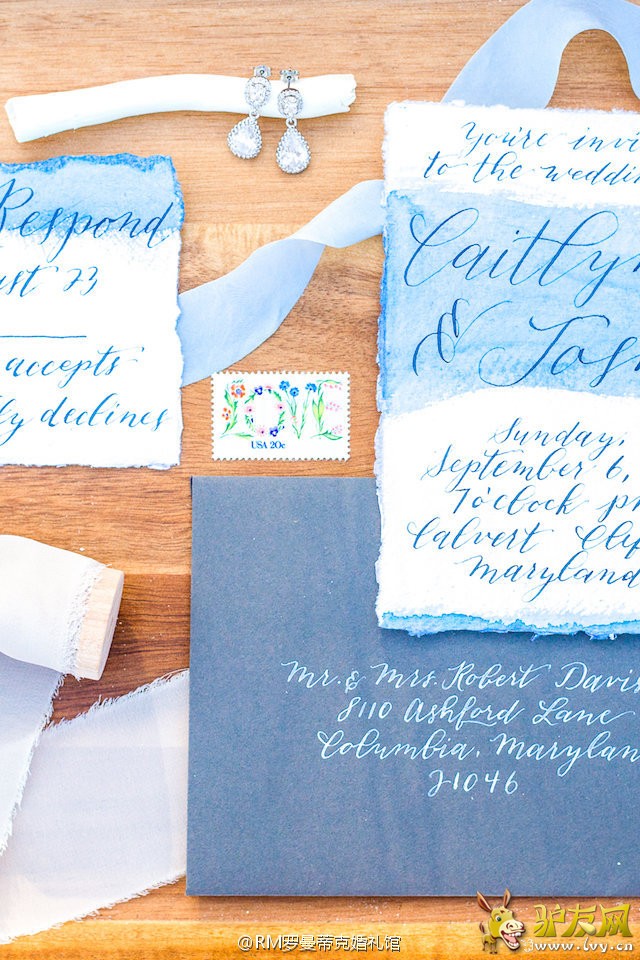 Respond
ust 23
accepts
ly declines
You're invi
to the weddin
Caitlyn
& Josh
Sunday,
September 6,
7 o'clock p
Calvert Clif
Maryland
USA 20c
Mr. & Mrs. Robert Davis
8110 Ashford Lane
Columbia, Marylan
21046
@RM罗曼蒂克婚礼馆
驴友网
www.lvy.cn